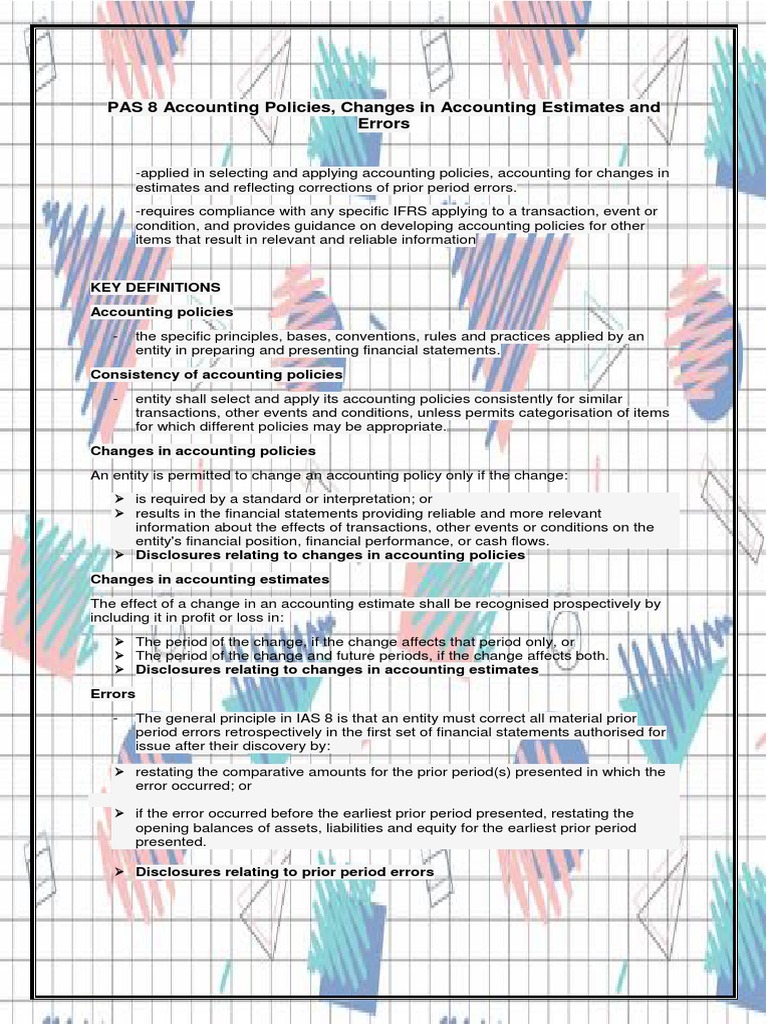 PAS 8 Accounting Policies, Changes in Accounting Estimates and
Errors
-applied in selecting and applying accounting policies, accounting for changes in
estimates and reflecting corrections of prior period errors.
-requires compliance with any specific IFRS applying to a transaction, event or
condition, and provides guidance on developing accounting policies for other
items that result in relevant and reliable information
KEY DEFINITIONS
Accounting policies
- the specific principles, bases, conventions, rules and practices applied by an
entity in preparing and presenting financial statements.
Consistency of accounting policies
- entity shall select and apply its accounting policies consistently for similar
transactions, other events and conditions, unless permits categorisation of items
for which different policies may be appropriate.
Changes in accounting policies
An entity is permitted to change an accounting policy only if the change:
➤ is required by a standard or interpretation; or
➤ results in the financial statements providing reliable and more relevant
information about the effects of transactions, other events or conditions on the
entity's financial position, financial performance, or cash flows.
➤ Disclosures relating to changes in accounting policies
Changes in accounting estimates
The effect of a change in an accounting estimate shall be recognised prospectively by
including it in profit or loss in:
➤ The period of the change, if the change affects that period only, or
➤ The period of the change and future periods, if the change affects both.
➤ Disclosures relating to changes in accounting estimates
Errors
- The general principle in IAS 8 is that an entity must correct all material prior
period errors retrospectively in the first set of financial statements authorised for
issue after their discovery by:
➤ restating the comparative amounts for the prior period(s) presented in which the
error occurred; or
➤ if the error occurred before the earliest prior period presented, restating the
opening balances of assets, liabilities and equity for the earliest prior period
presented.
➤ Disclosures relating to prior period errors